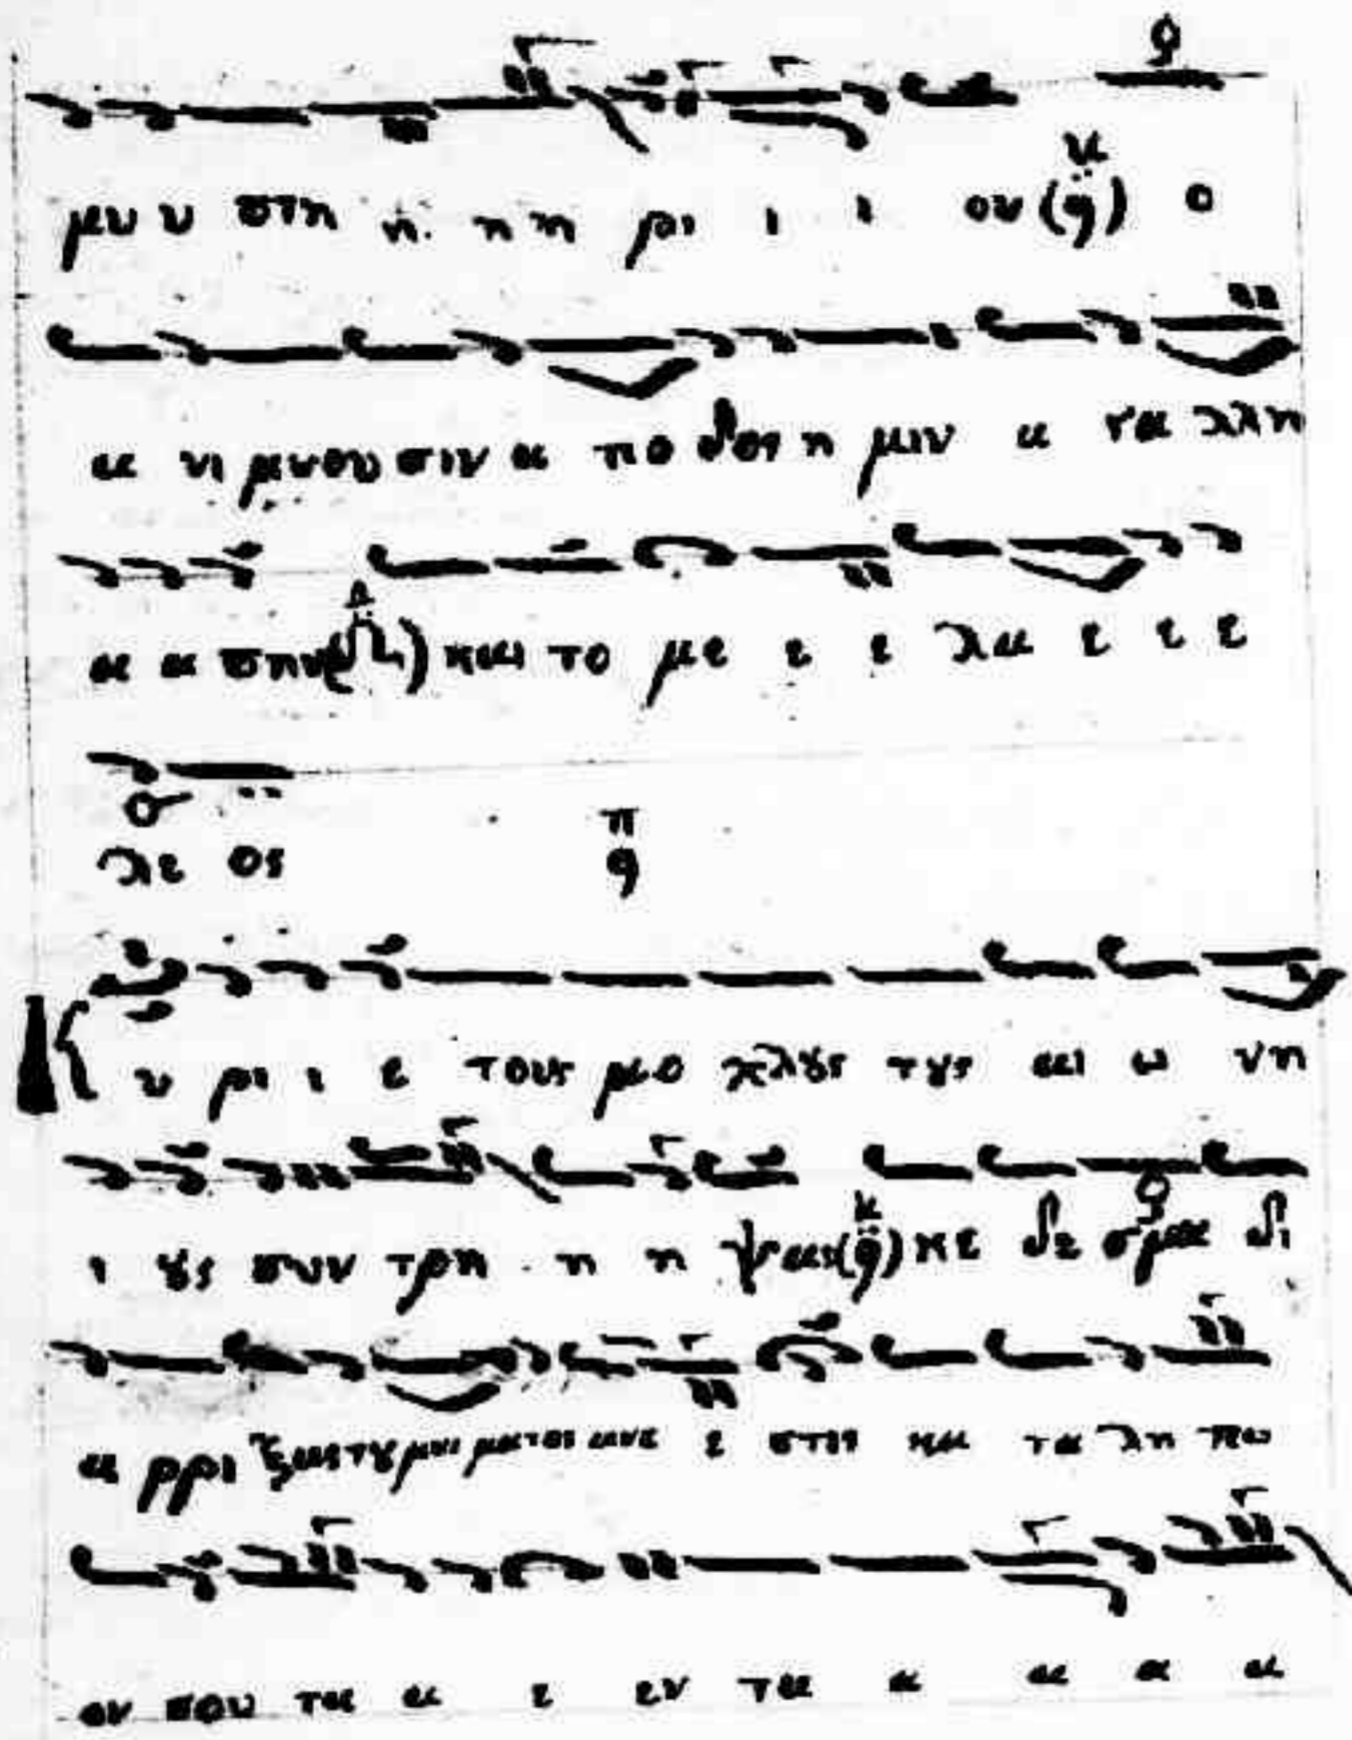 μυ υ στη η η η ρι ι ι ον (κ q) ο
α νι μνου σιν α πο δος η μιν α γα λλη
α α σιν και το με ε ε λα ε ε ε
λε ος π q
Κ υ ρι ι ε τους μο χλȣς τȣς αι ω νη
ι ȣς συν τρη η η ψας (κ q) κε δε σμα δι
α ρρι ξας τȣ μνη ματος ανε ε στης κα τα λη πω
ον σου τα α ε εν τα α α α α